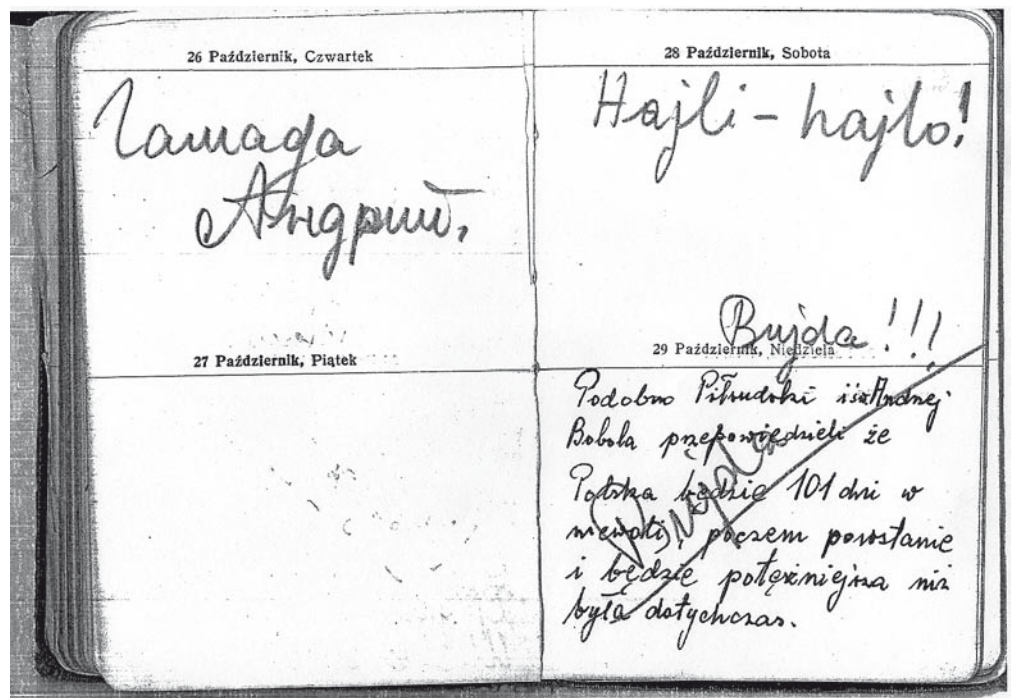 26 Październik, Czwartek
Гамада
Андрий,
27 Październik, Piątek
28 Październik, Sobota
Hajli - hajlo!
Bujda!!!
29 Październik, Niedziela
Podobno Piłsudski i św. Andrzej
Bobola przepowiedzieli że
Polska będzie 101 dni w
niewoli, poczem powstanie
i będzie potężniejsza niż
była dotychczas.
Bujda